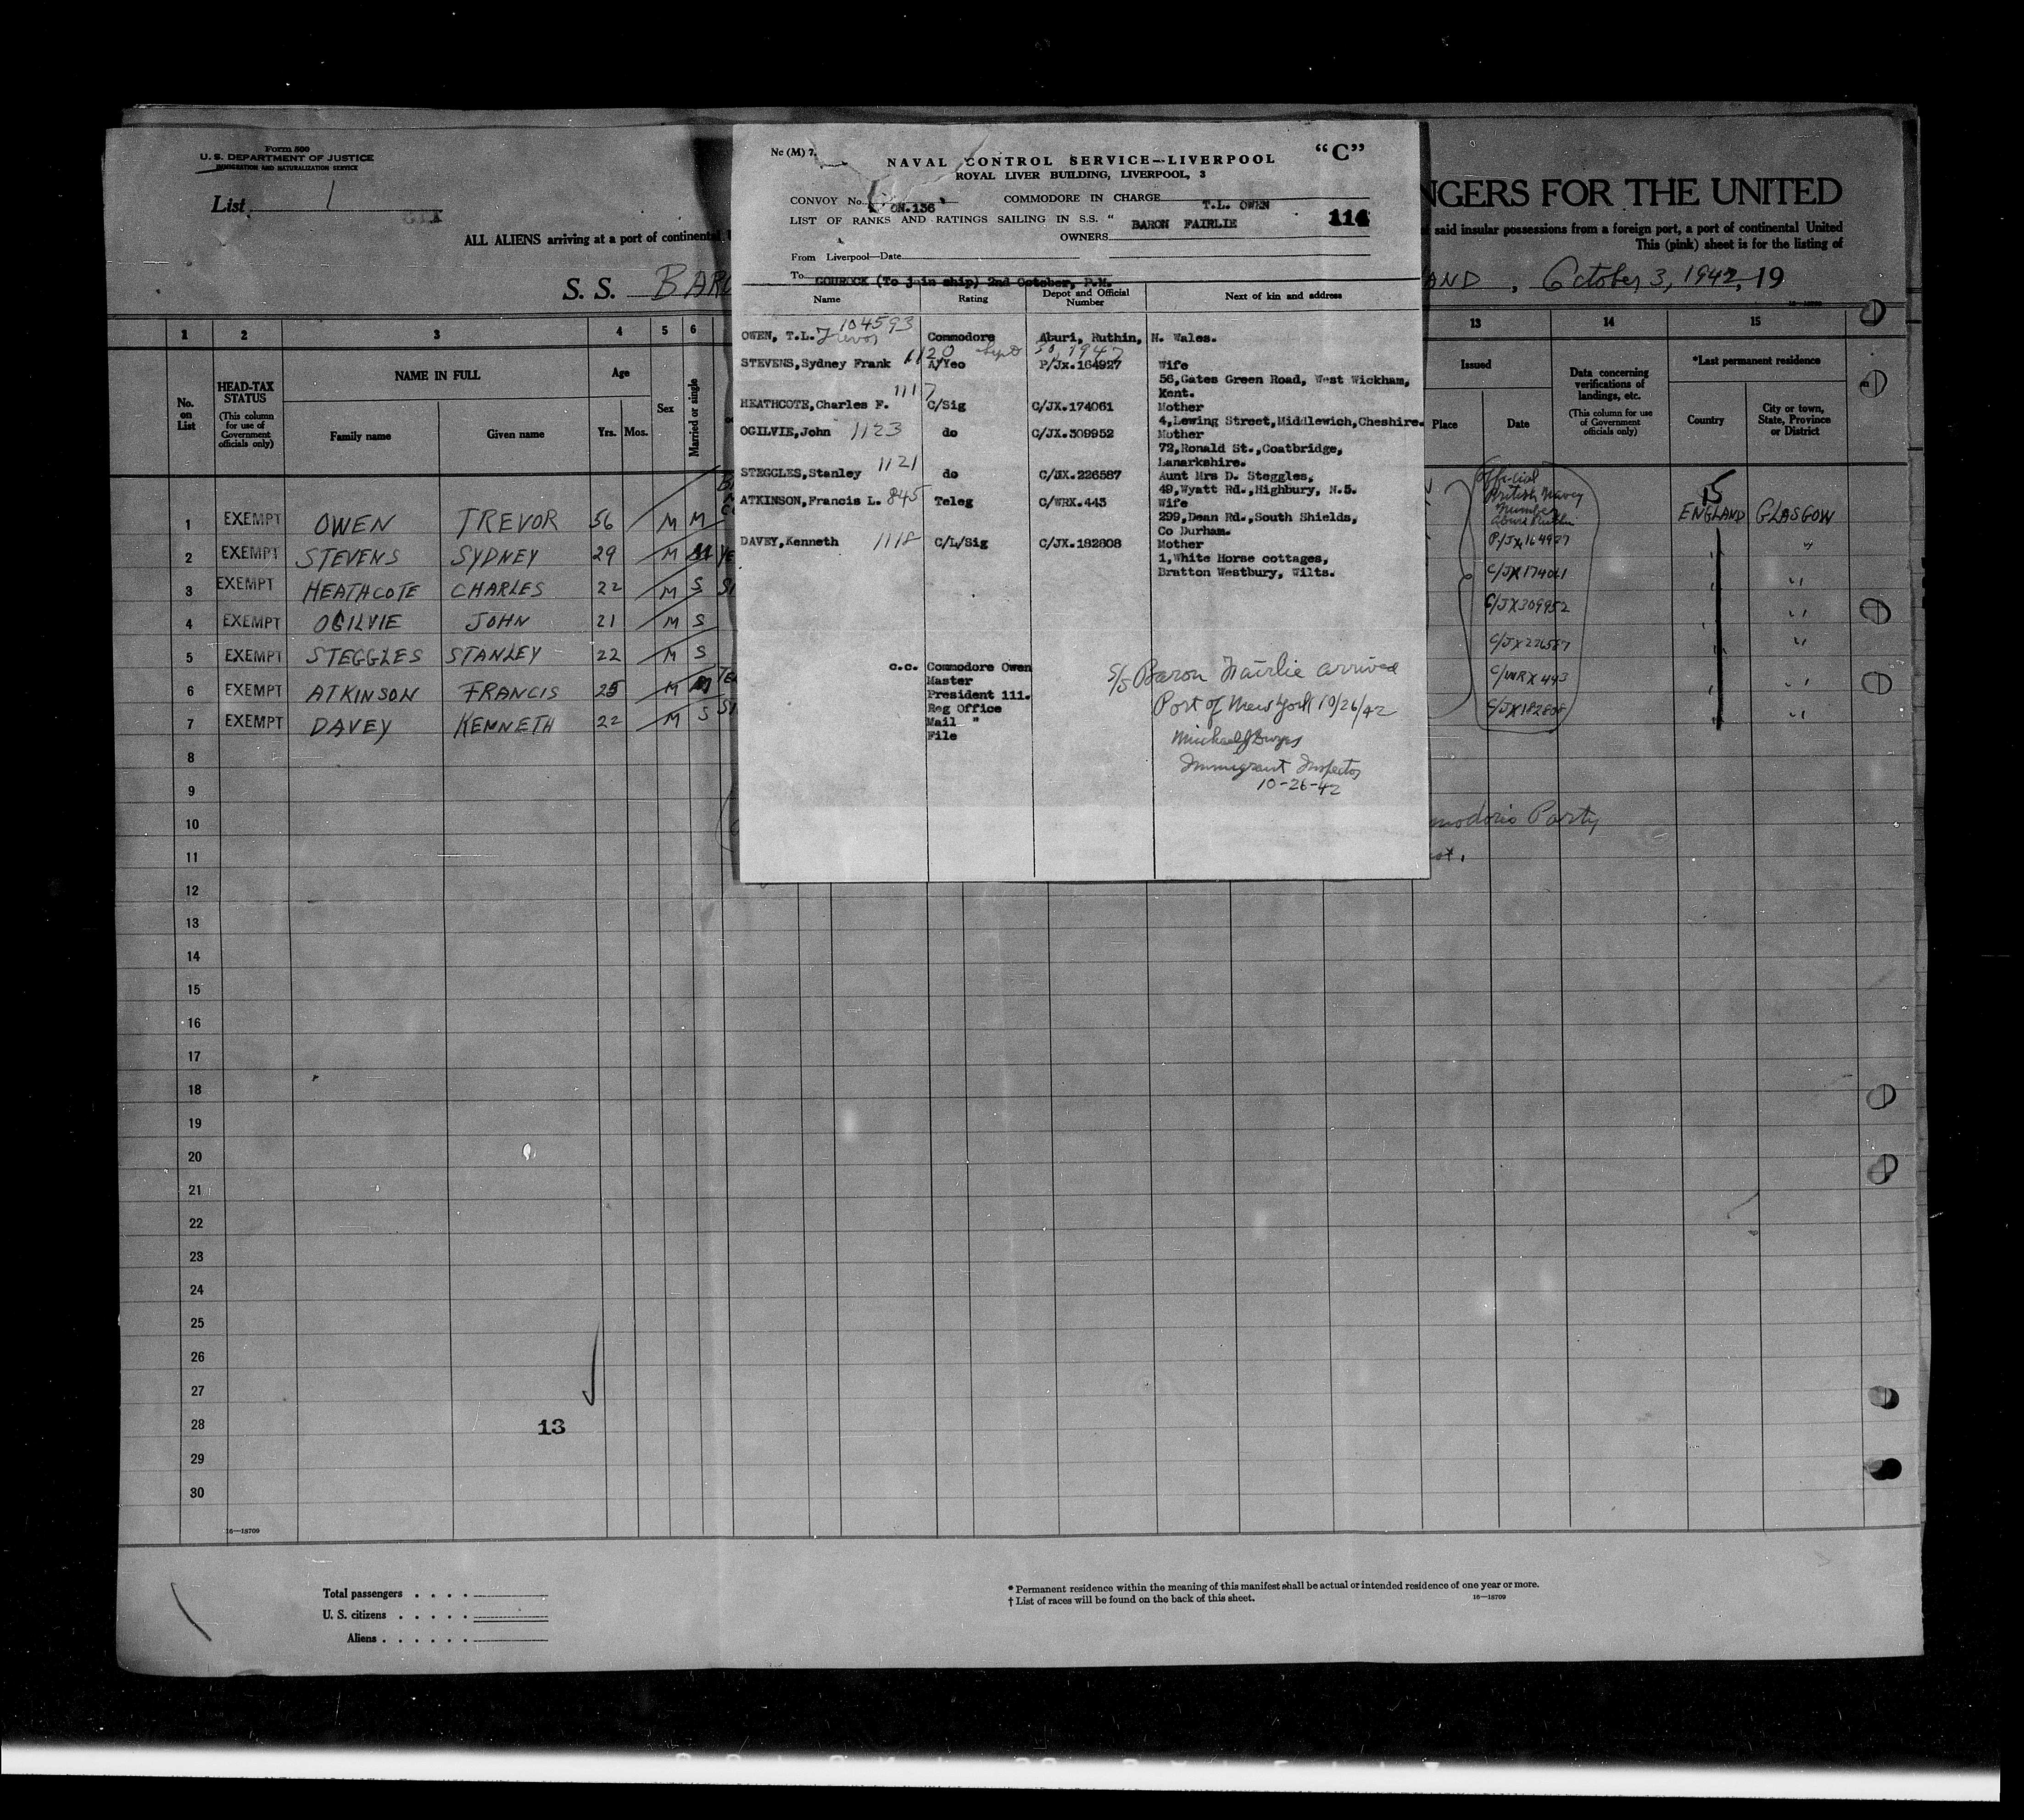 Form 500
U. S. DEPARTMENT OF JUSTICE
IMMIGRATION AND NATURALIZATION SERVICE
List 1
ALL ALIENS arriving at a port of continental
S. S. BAR
NGERS FOR THE UNITED
said insular possessions from a foreign port, a port of continental United
This (pink) sheet is for the listing of
AND, October 3, 1942, 19
No (M) 7.
"C"
NAVAL CONTROL SERVICE—LIVERPOOL
ROYAL LIVER BUILDING, LIVERPOOL, 3
CONVOY No. ON.136 COMMODORE IN CHARGE T.L. OWEN
LIST OF RANKS AND RATINGS SAILING IN S.S. " BARON FAIRLIE 114
OWNERS
From Liverpool—Date
To GOUROCK (To join ship) 2nd October, P.M.
Name Rating Depot and Official Number Next of kin and address
OWEN, T.L. Trevor 104593 Commodore Aburi, Ruthin, N. Wales.
STEVENS, Sydney Frank 1120 A/Yeo P/Jx.164927 Wife
56, Gates Green Road, West Wickham,
Kent.
HEATHCOTE, Charles F. 1117 C/Sig C/JX.174061 Mother
4, Lewing Street, Middlewich, Cheshire.
OGILVIE, John 1123 do C/JX.309952 Mother
72, Ronald St., Coatbridge,
Lanarkshire.
STEGGLES, Stanley 1121 do C/JX.226587 Aunt Mrs D. Steggles,
49, Wyatt Rd., Highbury, N.5.
ATKINSON, Francis L. 845 Teleg C/WRX.443 Wife
299, Dean Rd., South Shields,
Co Durham.
DAVEY, Kenneth 1118 C/L/Sig C/JX.182808 Mother
1, White Horse cottages,
Bratton Westbury, Wilts.
c.c. Commodore Owen
Master
President 111.
Reg Office
Mail "
File
S/S Baron Fairlie arrived
Port of New York 10/26/42
Immigrant Inspector
10-26-42
1 2 3 4 5 6 13 14 15
No. on List
HEAD-TAX STATUS
(This column for use of Government officials only)
NAME IN FULL
Family name Given name
Age
Yrs. Mos.
Sex
Married or single
Issued
Place Date
Data concerning verifications of landings, etc.
(This column for use of Government officials only)
*Last permanent residence
Country City or town, State, Province or District
Official British Navy Number
1 EXEMPT OWEN TREVOR 56 M M Aburi Ruthin 15 ENGLAND GLASGOW
2 EXEMPT STEVENS SYDNEY 29 M M P/JX164927 " "
3 EXEMPT HEATHCOTE CHARLES 22 M S C/JX174061 " "
4 EXEMPT OGILVIE JOHN 21 M S C/JX309952 " "
5 EXEMPT STEGGLES STANLEY 22 M S C/JX226587 " "
6 EXEMPT ATKINSON FRANCIS 25 M M C/WRX443 " "
7 EXEMPT DAVEY KENNETH 22 M S C/JX182808 " "
8
9
10 modore Party
11
12
13
14
15
16
17
18
19
20
21
22
23
24
25
26
27
28 13
29
30
16—18709
Total passengers . . . .
U. S. citizens . . . . .
Aliens . . . . . .
* Permanent residence within the meaning of this manifest shall be actual or intended residence of one year or more.
† List of races will be found on the back of this sheet.
16—18709